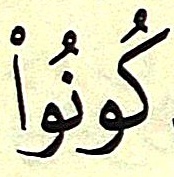 كُونُوا۟